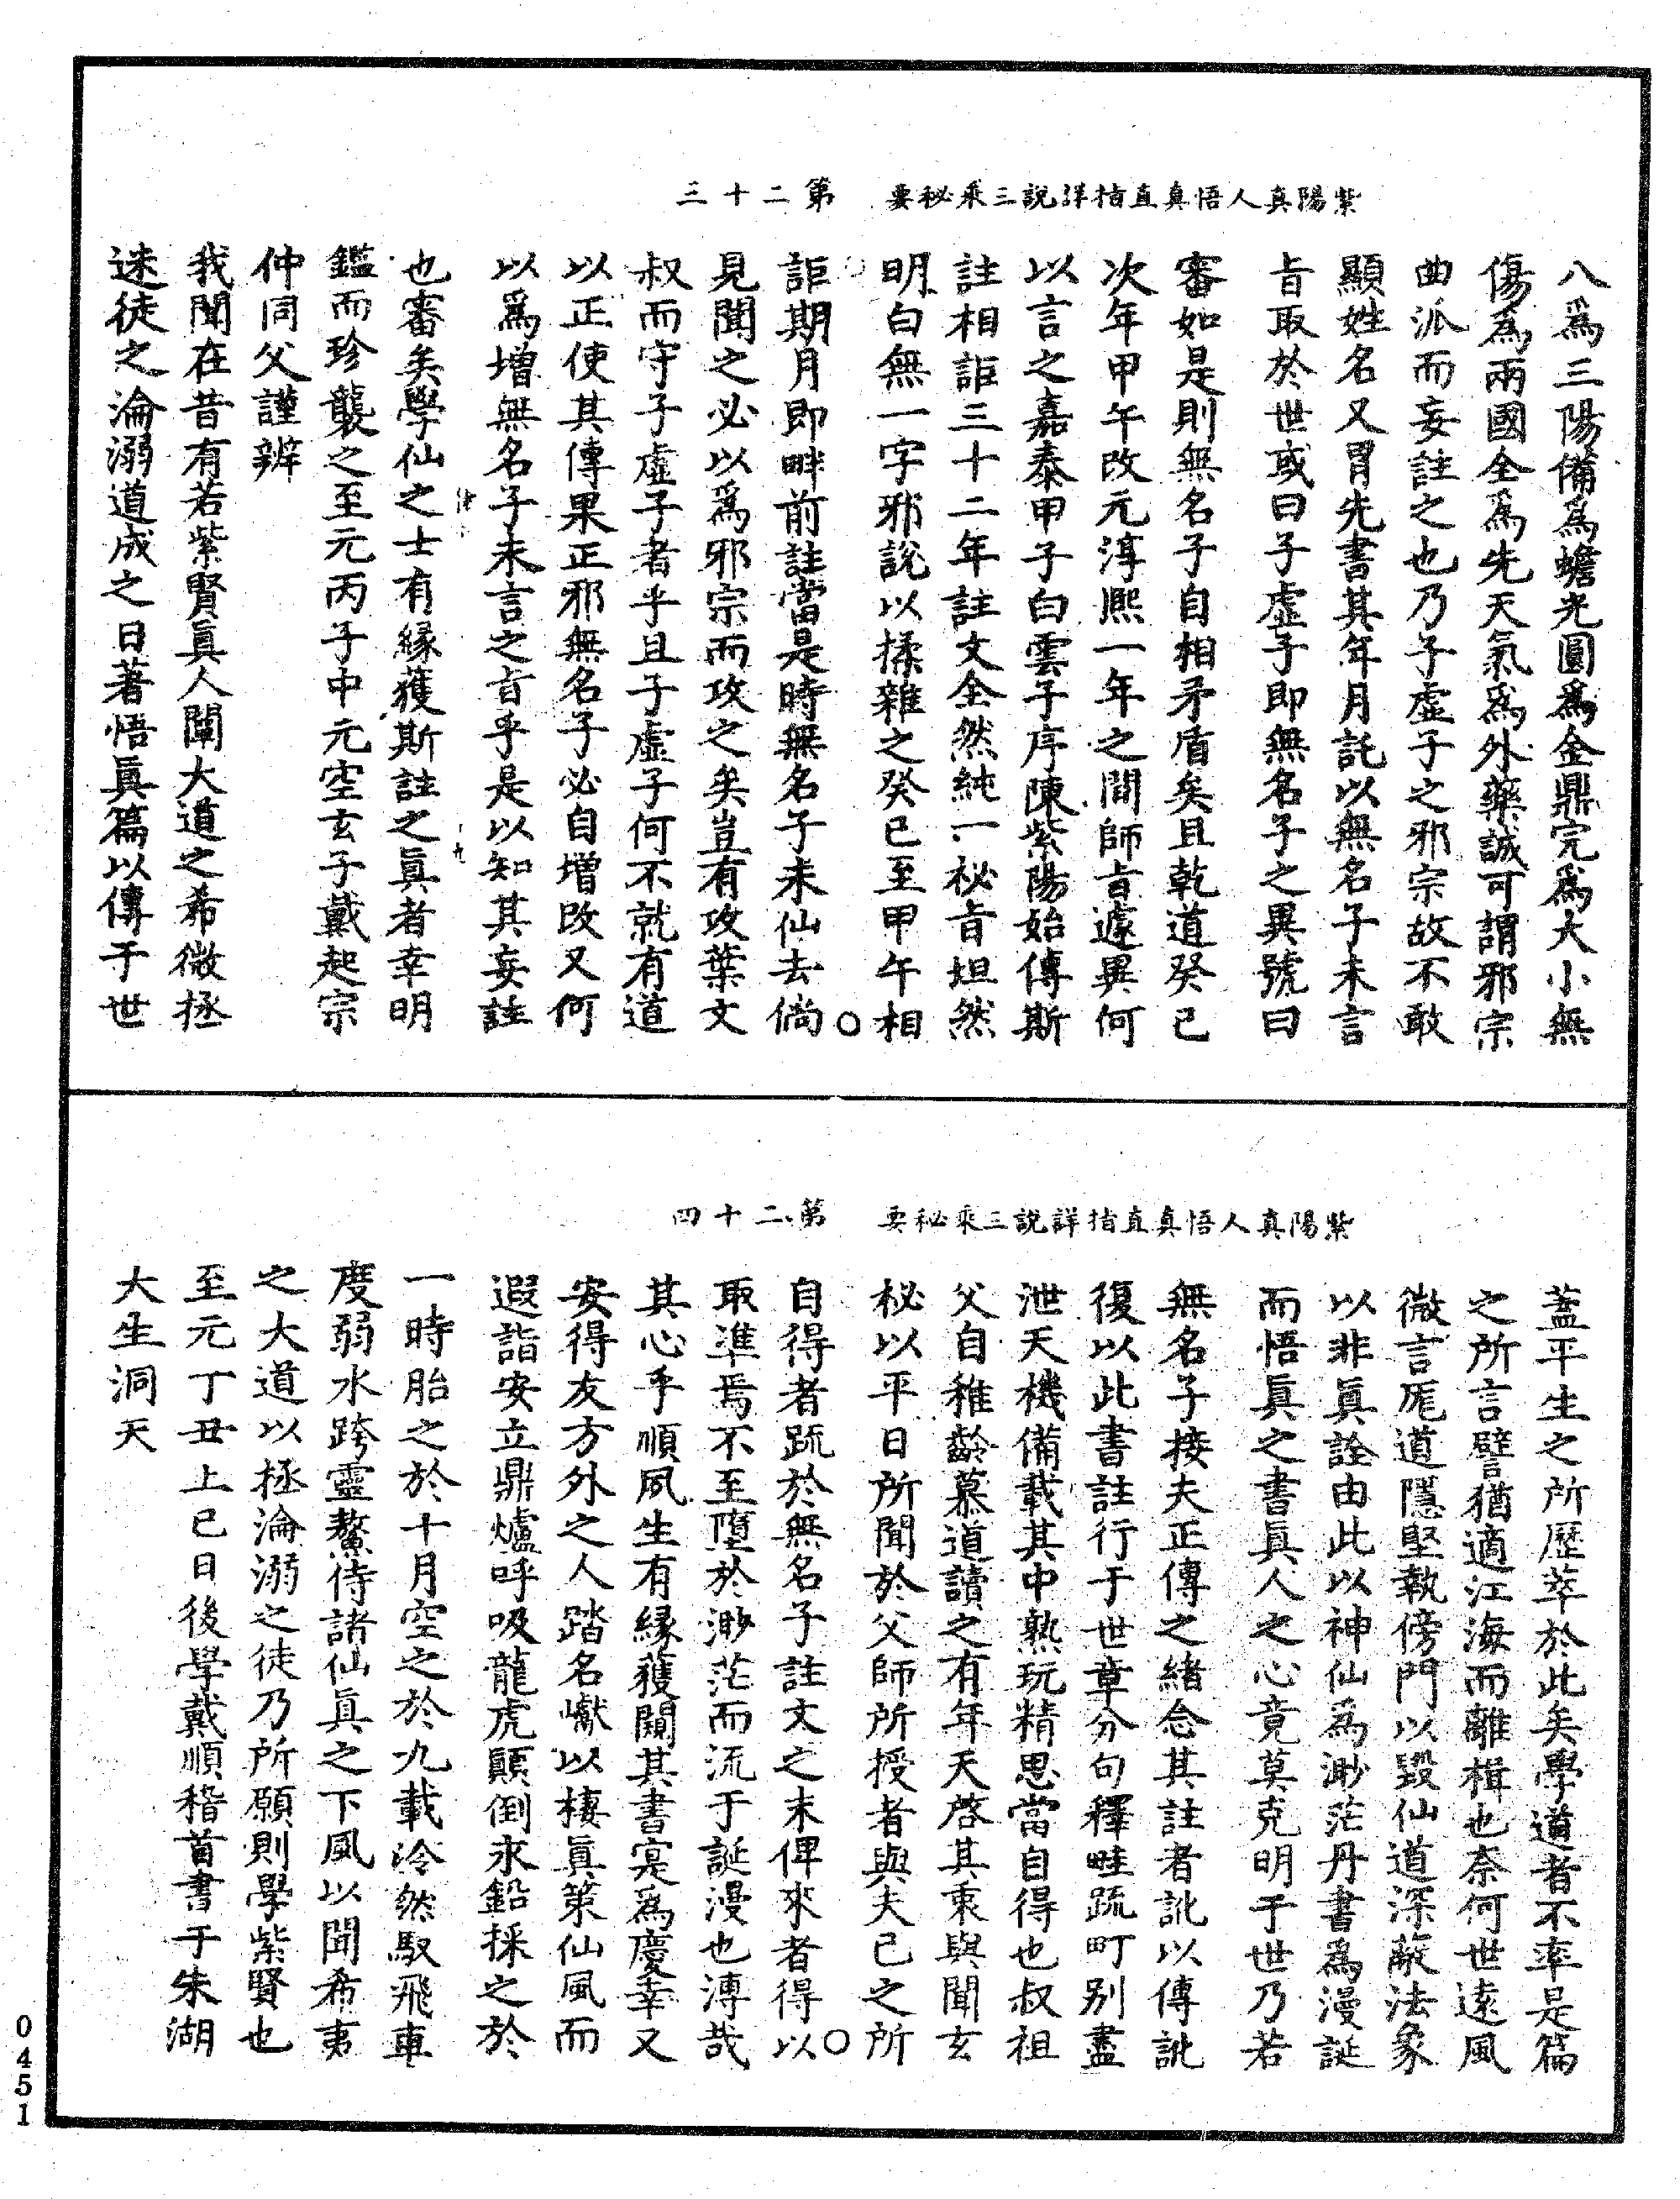 紫陽真人悟真直指詳說三乘秘要　第二十三
八爲三陽備爲蟾光圓爲金鼎完爲大小無
傷爲兩國全爲先天氣爲外藥誠可謂邪宗
曲派而妄註之也乃子虛子之邪宗故不敢
顯姓名又冒先書其年月託以無名子未言
旨取於世或曰子虛子即無名子之異號曰
審如是則無名子自相矛盾矣且乾道癸巳
次年甲午改元淳熙一年之間師旨遽異何
以言之嘉泰甲子白雲子序陳紫陽始傳斯
註相詎三十二年註文全然純一秘旨坦然
明白無一字邪說以揉雜之癸巳至甲午相
詎期月即畔前註當是時無名子未仙去倘
見聞之必以爲邪宗而攻之矣豈有攻葉文
叔而守子虛子者乎且子虛子何不就有道
以正使其傳果正邪無名子必自增改又何
以爲增無名子未言之旨乎是以知其妄註
也審矣學仙之士有緣獲斯註之眞者幸明
鑑而珍襲之至元丙子中元空玄子戴起宗
仲同父謹辨
我聞在昔有若紫賢眞人闡大道之希微拯
迷徒之淪溺道成之日著悟眞篇以傳于世
紫陽真人悟真直指詳說三乘秘要　第二十四
蓋平生之所歷萃於此矣學道者不率是篇
之所言譬猶適江海而離楫也奈何世遠風
微言厖道隱堅執傍門以毀仙道深蔽法象
以非眞詮由此以神仙爲渺茫丹書爲漫誕
而悟眞之書眞人之心竟莫克明于世乃若
無名子接夫正傳之緒念其註者訛以傳訛
復以此書註行于世章分句釋畦疏町别盡
泄天機備載其中熟玩精思當自得也叔祖
父自稚齡慕道讀之有年天啓其衷與聞玄
秘以平日所聞於父師所授者與夫己之所
自得者疏於無名子註文之末俾來者得以
取準焉不至墮於渺茫而流于誕漫也溥哉
其心乎順夙生有緣獲闚其書寔爲慶幸又
安得友方外之人踏名巘以棲眞策仙風而
遐詣安立鼎爐呼吸龍虎顛倒永鉛採之於
一時胎之於十月空之於九載泠然馭飛車
度弱水跨靈鰲侍諸仙眞之下風以聞希夷
之大道以拯淪溺之徒乃所願則學紫賢也
至元丁丑上巳日後學戴順稽首書于朱湖
大生洞天
0451